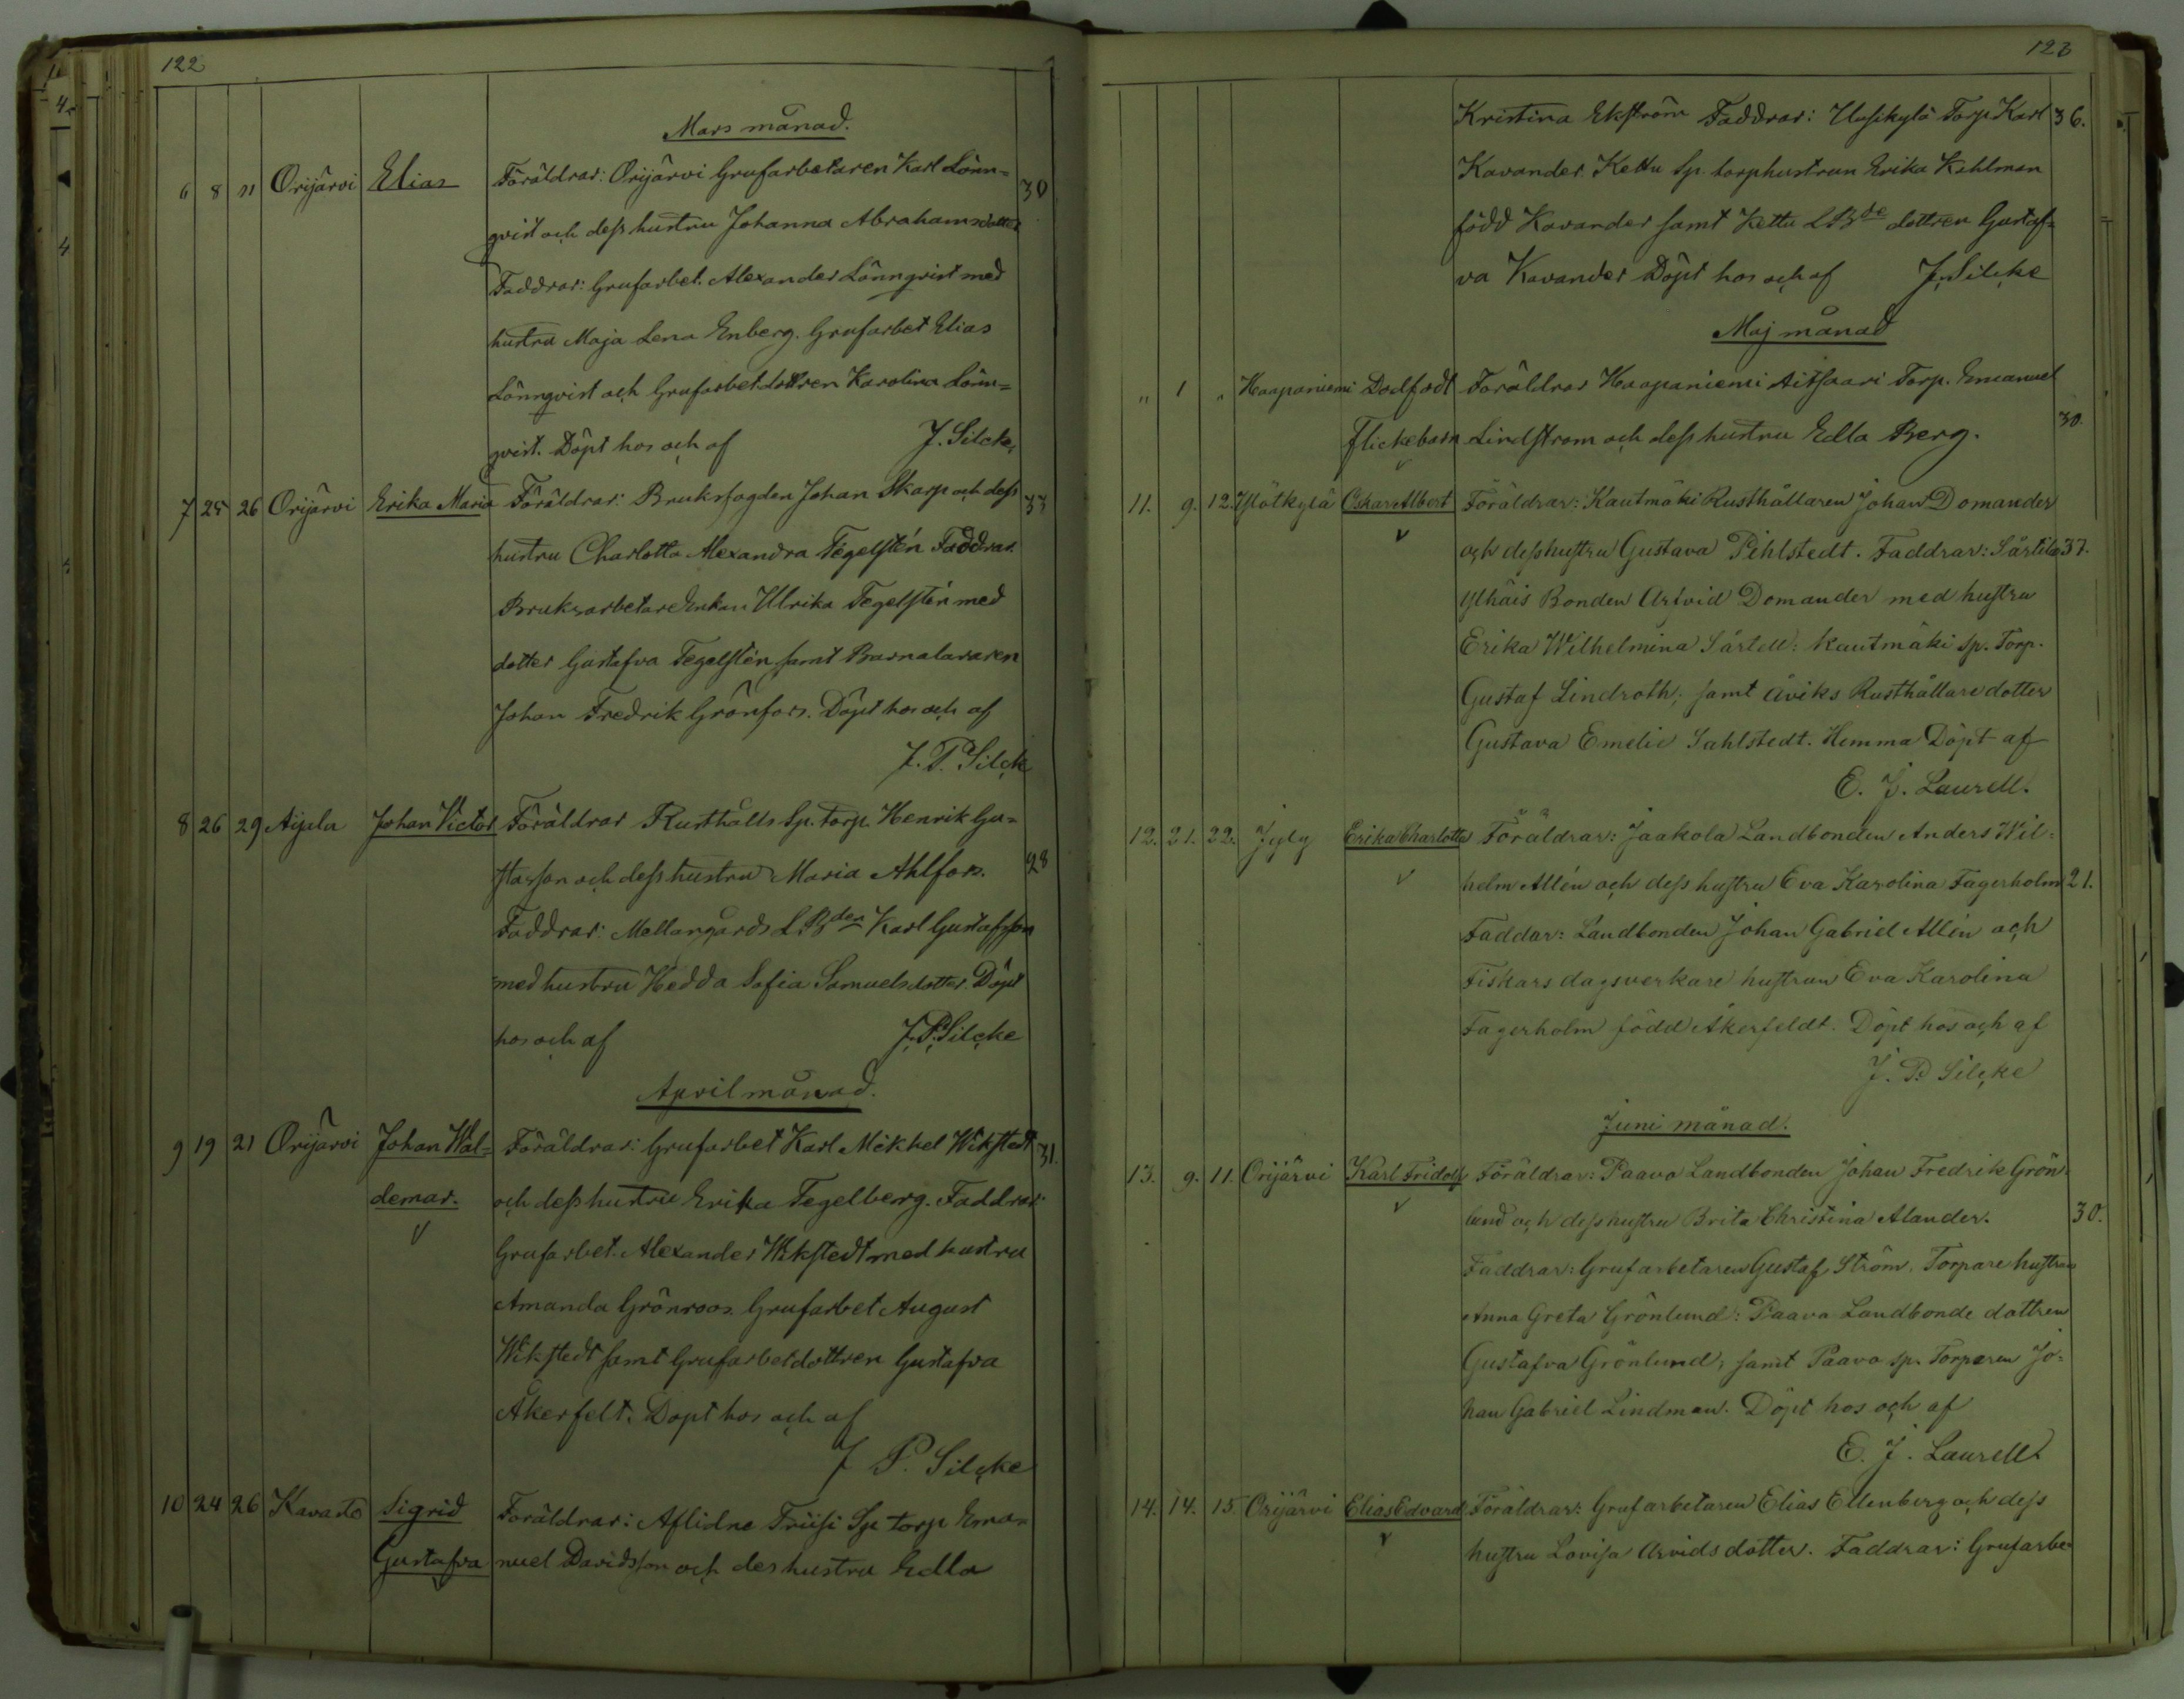 122
Mars månad.
6 8 11 Orijärvi Elias Föräldrar: Orijärvi Grufarbetaren Karl Lönn= 30
qvist och dess hustru Johanna Abrahamsdotter
Faddrar: Grufarbet. Alexander Lönnqvist med
hustru Maja Lena Enberg. Grufarbet Elias
Lönnqvist och Grufarbet. dottren Karolina Lönn=
qvist. Döpt hos och af J. Silcke,
7 25 26 Orijärvi Erika Maria Föräldrar: Bruksfogden Johan Skarp och dess 33
hustru Charlotta Alexandra Tegelstén Faddrar.
Bruksarbetare Enkan Ulrika Tegelstén med
dotter Gustafva Tegelstén samt Barnalararen
Johan Fredrik Grönfors. Döpt hos och af
J. P. Silck
8 26 29 Aijala Johan Victor Föräldrar Rusthålls Sp. torp. Henrik Gu=
stafsson och dess hustru Maria Ahlfors. 28
Faddrar: Mellangårds LBden Karl Gustafsson
med hustru Hedda Sofia Samuelsdotter. Döpt
hos och af J. P. Silcke
April månad.
9 19 21 Orijärvi Johan Wal= Föräldrar: Grufarbet Karl Mikkel Wikstedt 31.
demar. och dess hustru Erika Tegelberg. Faddrar:
Grufarbet. Alexander Wikstedt med hustru
Amanda Grönroos. Grufarbet August
Wikstedt samt Grufarbetdottren Gustafva
Åkerfelt. Döpt hos och af
J P. Silcke
10 24 26 Kavasto Sigrid Föräldrar: Aflidne Triisi Sp torp Ema=
Gustafva nuel Davidsson och des hustru Edla
123
Kristina Ekström Faddrar: Uusikylä Torp Karl 36.
Kavander Kettu Sp. torphustrun Erika Kahlman
född Kavander samt Kettu LBde dottren Gustaf=
va Kavander Döpt hos och af J. Silcke
Maj månad
" 1 " Haapaniemi Dödfödt Föräldrar Haapaniemi Aitsaari Torp. Emanuel
Flickebarn Lindstrom och dess hustru Edla Berg. 30.
11. 9. 12. Ylötkylä Oskar Albert Föräldrar: Kautmäki Rusthållaren Johan Domander
och dess hustru Gustava Pihlstedt. Faddrar: Särtilä 37.
Ylhäis Bonden Arfvid Domander med hustru
Erika Wilhelmina Särtell: Kautmäki sp. Torp.
Gustaf Lindroth, samt Åviks Rusthållaredotter
Gustava Emelie Sahlstedt. Hemma Döpt af
E. J. Laurell.
12. 21. 22. Jyly Erika Charlotta Föräldrar: Jaakola Landbonden Anders Wil=
helm Allén och dess hustru Eva Karolina Fagerholm 21.
Faddar: Landbonden Johan Gabriel Allén och
Fiskars dagsverkare hustrun Eva Karolina
Fagerholm född Åkerfeldt. Döpt hos och af
J. P. Silcke
Juni månad.
13. 9. 11. Orijärvi Karl Fridolf Föräldrar: Paavo Landbonden Johan Fredrik Grön
lund och dess hustru Brita Christina Alander. 30.
Faddrar: Grufarbetaren Gustaf Ström, Torpare hustrun
Anna Greta Grönlund: Paavo Landbonde dottren
Gustafva Grönlund; samt Paavo sp. Torparen Jo=
han Gabriel Lindman. Döpt hos och af
E. J. Laurell
14. 14. 15. Orijärvi Elias Edvard Föräldrar: Grufarbetaren Elias Ellenberg och dess
hustru Lovisa Arvidsdotter. Faddrar: Grufarbe